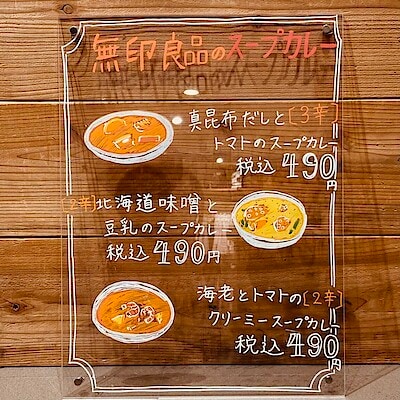 無印良品のスープカレー
真昆布だしと[3辛]
トマトのスープカレー
税込490円
[2辛]北海道味噌と
豆乳のスープカレー
税込490円
海老とトマトの[2辛]
クリーミースープカレー
税込490円